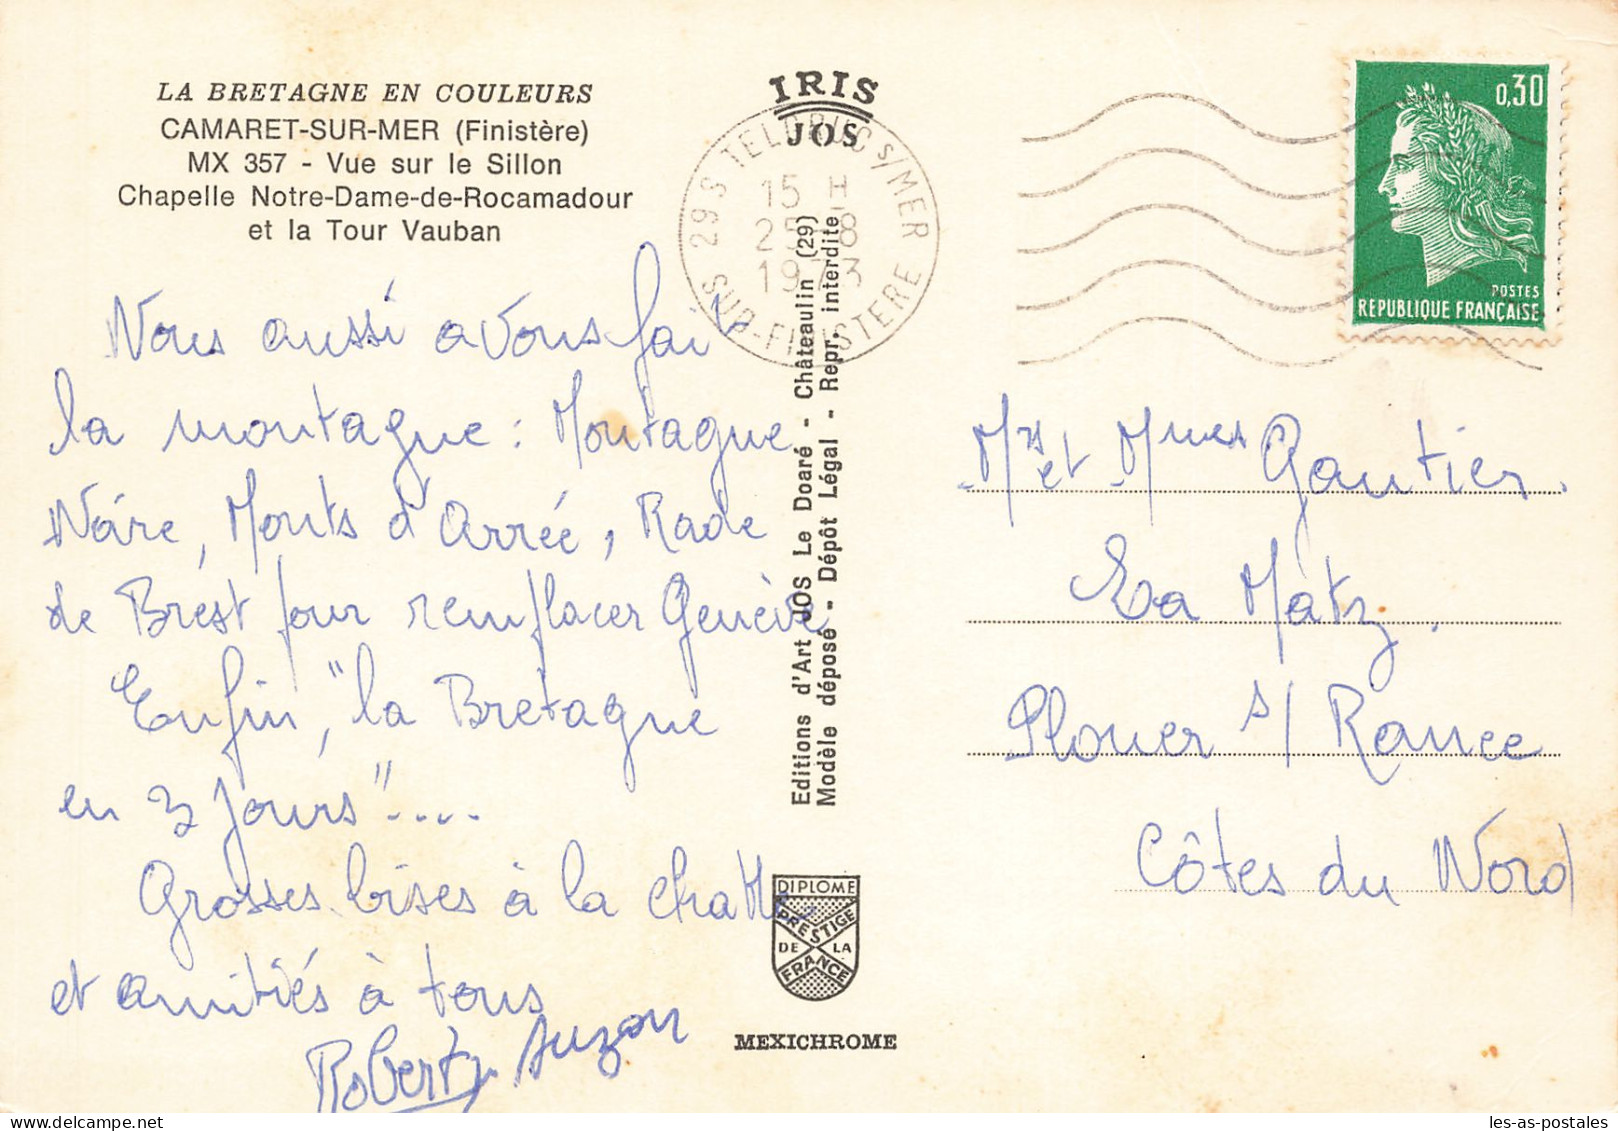 LA BRETAGNE EN COULEURS
CAMARET-SUR-MER (Finistère)
MX 357 - Vue sur le Sillon
Chapelle Notre-Dame-de-Rocamadour
et la Tour Vauban
Nous aussi avons fai
la montagne : Montagne
Noire, Monts d'Arrée, Rade
de Brest pour remplacer Genève
Enfin, "la Bretagne
en 3 jours"....
Grosses bises à la chatte
et amitiés à tous
Robert Suzon
IRIS
JOS
29 S TELGRUC S/MER
15 H
25-8
1973
SUD-FINISTERE
Editions d'Art JOS Le Doaré - Châteaulin (29)
Modèle déposé - Dépôt Légal - Repr. interdite
DIPLOME
PRESTIGE
DE LA
FRANCE
MEXICHROME
0,30
POSTES
REPUBLIQUE FRANÇAISE
Mrs et Mmes Gautier
La Mātz.
Plouer s/ Rance
Côtes du Nord
les-as-postales